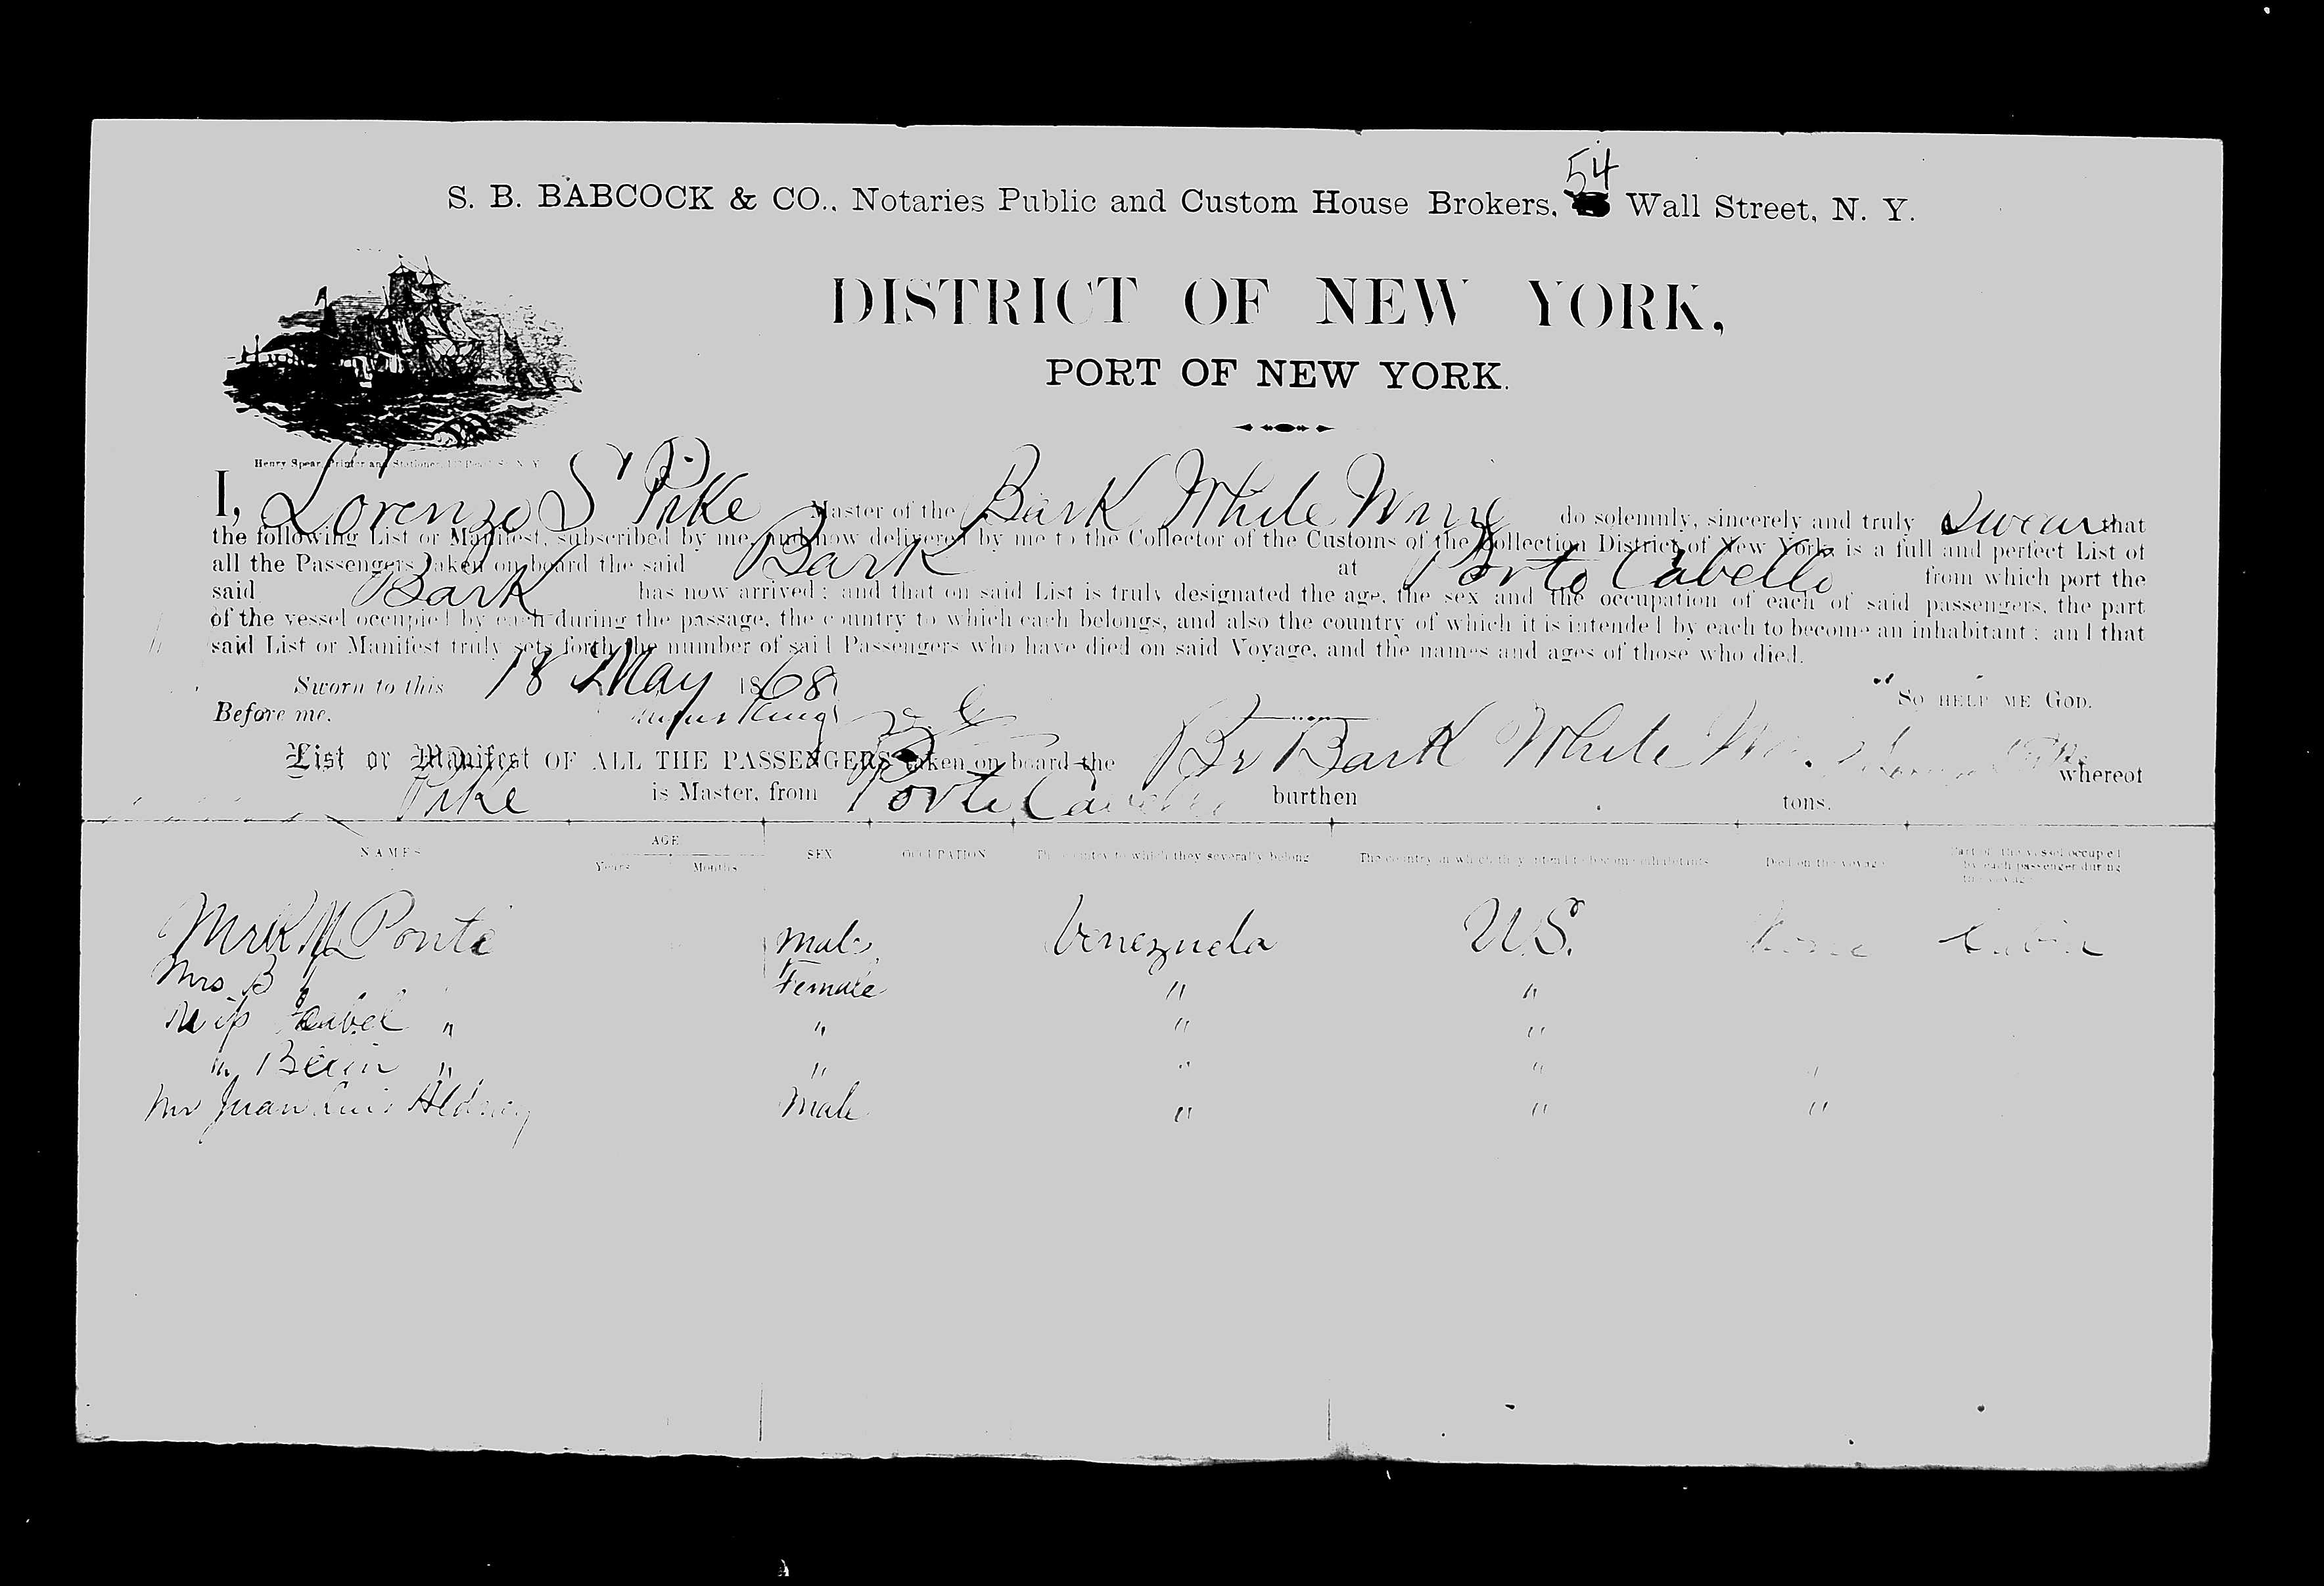 54
S. B. BABCOCK & CO., Notaries Public and Custom House Brokers, Wall Street, N. Y.
DISTRICT OF NEW YORK,
PORT OF NEW YORK.
Henry Spear, Printer and Stationer, N. Y.
I, Lorenzo S Pike Master of the Bark White Wing do solemnly, sincerely and truly swear that
the following List or Manifest, subscribed by me, and now delivered by me to the Collector of the Customs of the Collection District of New York, is a full and perfect List of
all the Passengers taken on board the said Bark at Porto Cabello from which port the
said Bark has now arrived; and that on said List is truly designated the age, the sex and the occupation of each of said passengers, the part
of the vessel occupied by each during the passage, the country to which each belongs, and also the country of which it is intended by each to become an inhabitant; and that
said List or Manifest truly sets forth the number of said Passengers who have died on said Voyage, and the names and ages of those who died.
Sworn to this 18 May 1868 So HELP ME GOD.
Before me,
List or Manifest OF ALL THE PASSENGERS taken on board the Br Bark White whereof
Pike is Master, from Porto Cabello burthen tons.
NAMES AGE Years Months SEX OCCUPATION The country to which they severally belong The country in which they intend to become inhabitants Died on the voyage Part of the vessel occupied by each passenger during the voyage
Ponte Male Venezuela U.S. None Cabin
Mrs B " Female " "
Miss Isabel " " " "
" " " " " "
Mr Juan Luis Male " " "